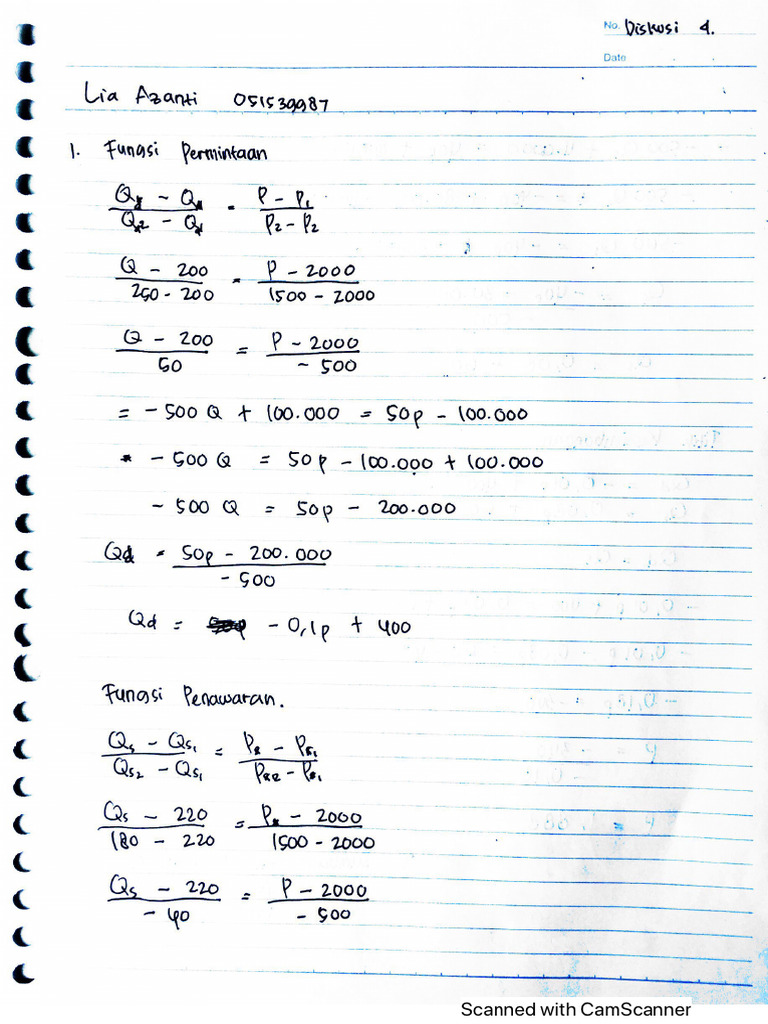 No. Diskusi 4.
Date
Lia Azanti 051539987
1. Fungsi Permintaan
Q - Q / Q2 - Q = P - P1 / P2 - P2
Q - 200 / 250 - 200 = P - 2000 / 1500 - 2000
Q - 200 / 50 = P - 2000 / - 500
= - 500 Q + 100.000 = 50p - 100.000
- 500 Q = 50p - 100.000 + 100.000
- 500 Q = 50p - 200.000
Qd = 50p - 200.000 / - 500
Qd = - 0,1p + 400
Fungsi Penawaran.
Qs - Qs1 / Qs2 - Qs1 = P - P1 / P2 - P1
Qs - 220 / 180 - 220 = P - 2000 / 1500 - 2000
Qs - 220 / - 40 = P - 2000 / - 500
Scanned with CamScanner